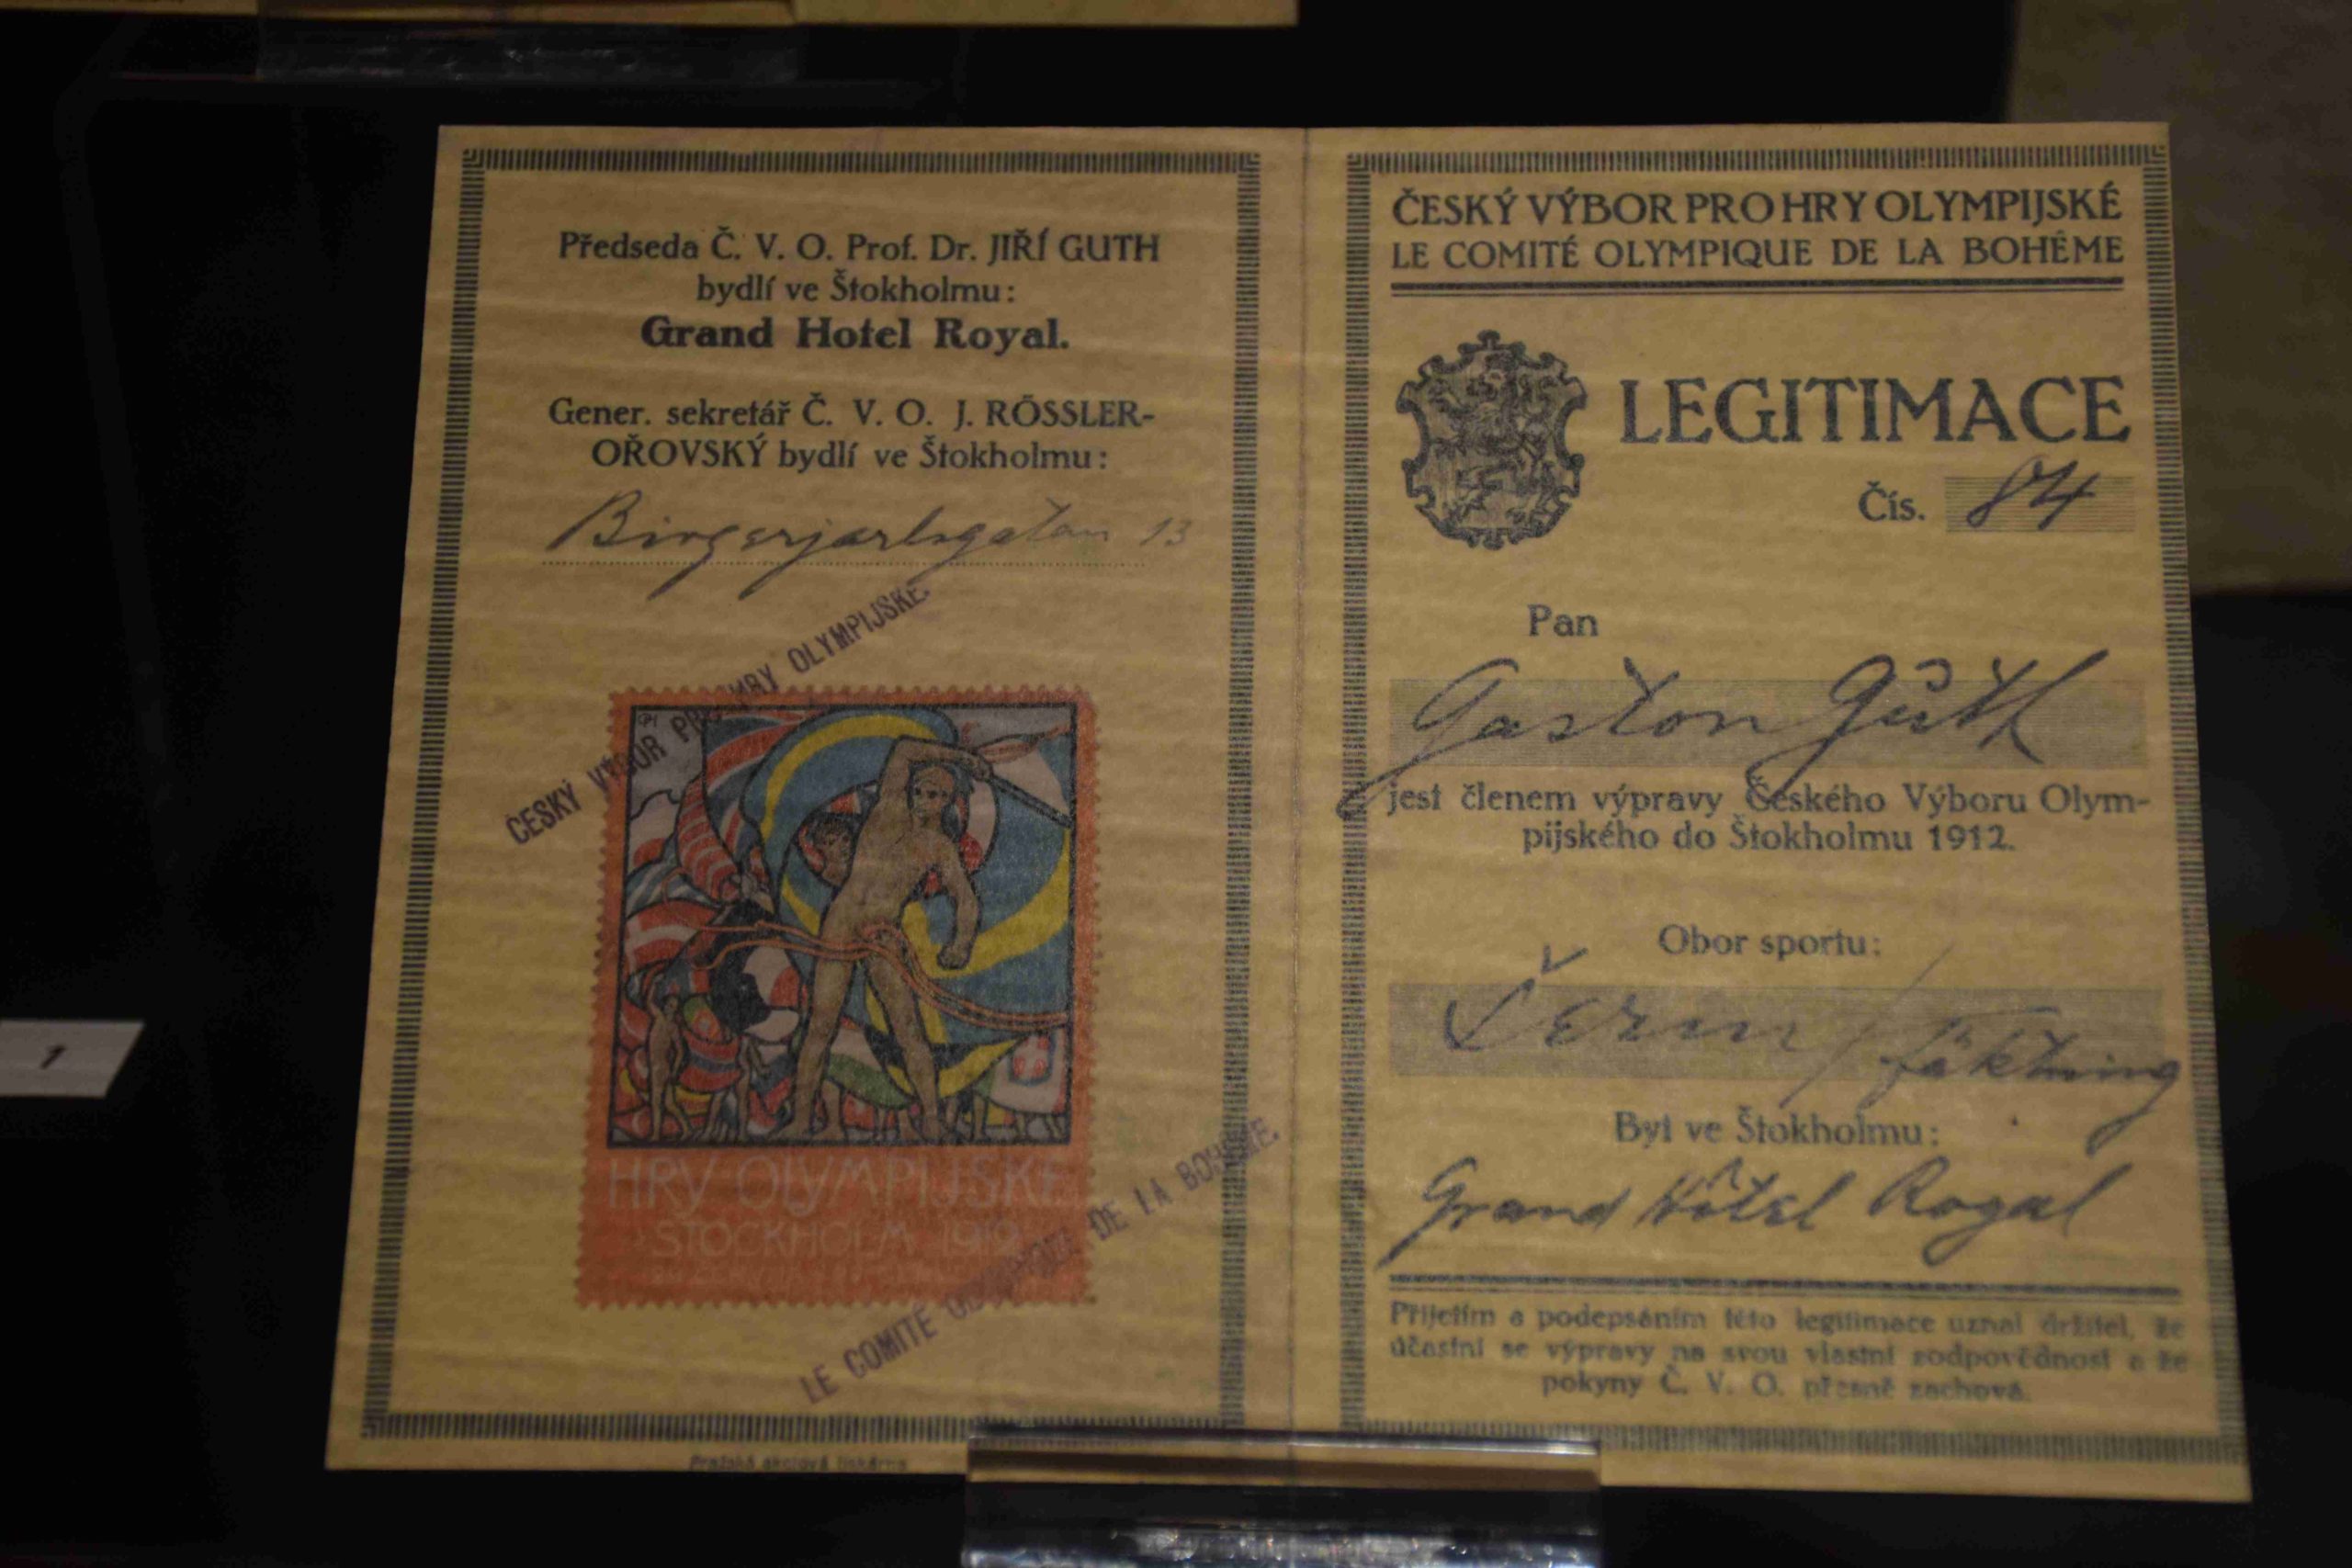 Předseda Č. V. O. Prof. Dr. JIŘÍ GUTH
bydlí ve Štokholmu:
Grand Hotel Royal.
Gener. sekretář Č. V. O. J. RÖSSLER-
OŘOVSKÝ bydlí ve Štokholmu:
Birgerjarlsgatan 13
ČESKÝ VÝBOR PRO HRY OLYMPIJSKÉ.
HRY OLYMPIJSKÉ
STOCKHOLM 1912
LE COMITÉ OLYMPIQUE DE LA BOHÊME.
Pražská akciová tiskárna
ČESKÝ VÝBOR PRO HRY OLYMPIJSKÉ
LE COMITÉ OLYMPIQUE DE LA BOHÊME
LEGITIMACE
Čís. 84
Pan
Gaston Guth
jest členem výpravy Českého Výboru Olym-
pijského do Štokholmu 1912.
Obor sportu:
Šerm / fäktning
Byt ve Štokholmu:
Grand Hôtel Royal
Přijetím a podepsáním této legitimace uznal držitel, že
účastní se výpravy na svou vlastní zodpovědnost a že
pokyny Č. V. O. přesně zachová.
1